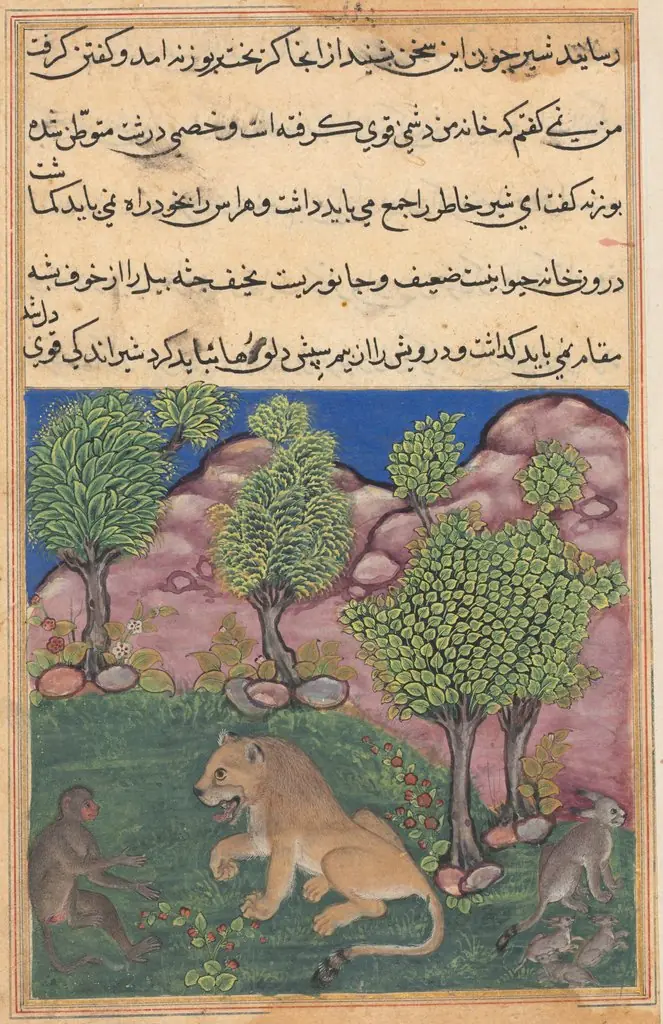 رسانید شیر چون این سخن بشنید از انجا کریخت بر بوزنه امد و کفتن کرفت
من نمي کفتم که خانه من دشمني قوي کرفته است و خصمي درشت متوطّن شده
بوزنه کفت اي شیر خاطر را جمع مي باید داشت و هراس را بخود راه نمي باید کماشت
درون خانه حیوانیست ضعیف و جانوریست نحیف جثه پیل را از خوف پشه
مقام نمي باید کذاشت و درویش را از بیم سپش دلق رها نباید کرد شیر اندکي قوي دل شد